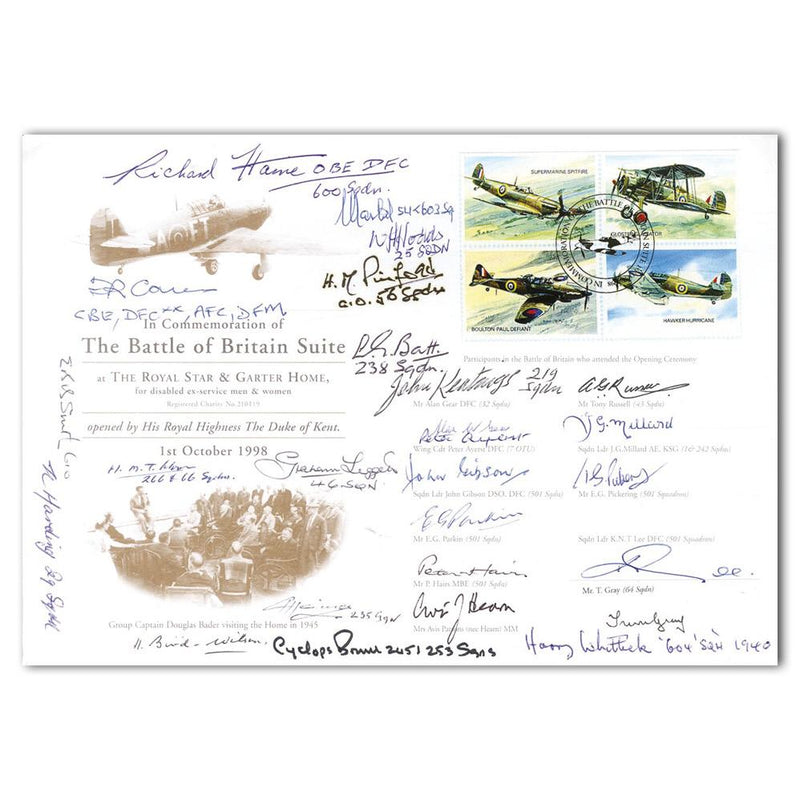 Richard Haine OBE DFC
600 Sqdn.
54 & 603 Sq
25 SQDN
H. M. Pinfold
C.O. 56 Sqdn
CBE, DFC**, AFC, DFM
SUPERMARINE SPITFIRE
BOULTON PAUL DEFIANT
HAWKER HURRICANE
In Commemoration of
The Battle of Britain Suite
at THE ROYAL STAR & GARTER HOME,
for disabled ex-service men & women
Registered Charity No 210119
opened by His Royal Highness The Duke of Kent.
1st October 1998
P.G. Batt.
238 Sqdn.
John Keatings 219
Sqdn
Participants in the Battle of Britain who attended the Opening Ceremony
Mr Alan Gear DFC (32 Sqdn)
Mr Tony Russell (43 Sqdn)
J G. Millard
Wing Cdr Peter Ayerst DFC (7 OTU)
Sqdn Ldr J.G.Millard AE, KSG (1& 242 Sqdn)
H. M. T.
266 & 66 Sqdns.
Graham Leggett
46 SQN
John Gibson
Sqdn Ldr John Gibson DSO, DFC (501 Sqdn)
Mr E.G. Pickering (501 Squadron)
E G Parkin
Mr E.G. Parkin (501 Sqdn)
Sqdn Ldr K.N.T Lee DFC (501 Squadron)
Peter Hairs
Mr P. Hairs MBE (501 Sqdn)
Mr. T. Gray (64 Sqdn)
N Harding 29 Sqdn
235 Sqn
Avis J Hearn
Mrs Avis Parsons (nec Hearn) MM
Trevor Gray
Group Captain Douglas Bader visiting the Home in 1945
H. Bird-Wilson.
Cyclops Brown 245 & 253 Sqns
Harry Whittick '604' Sqn 1940